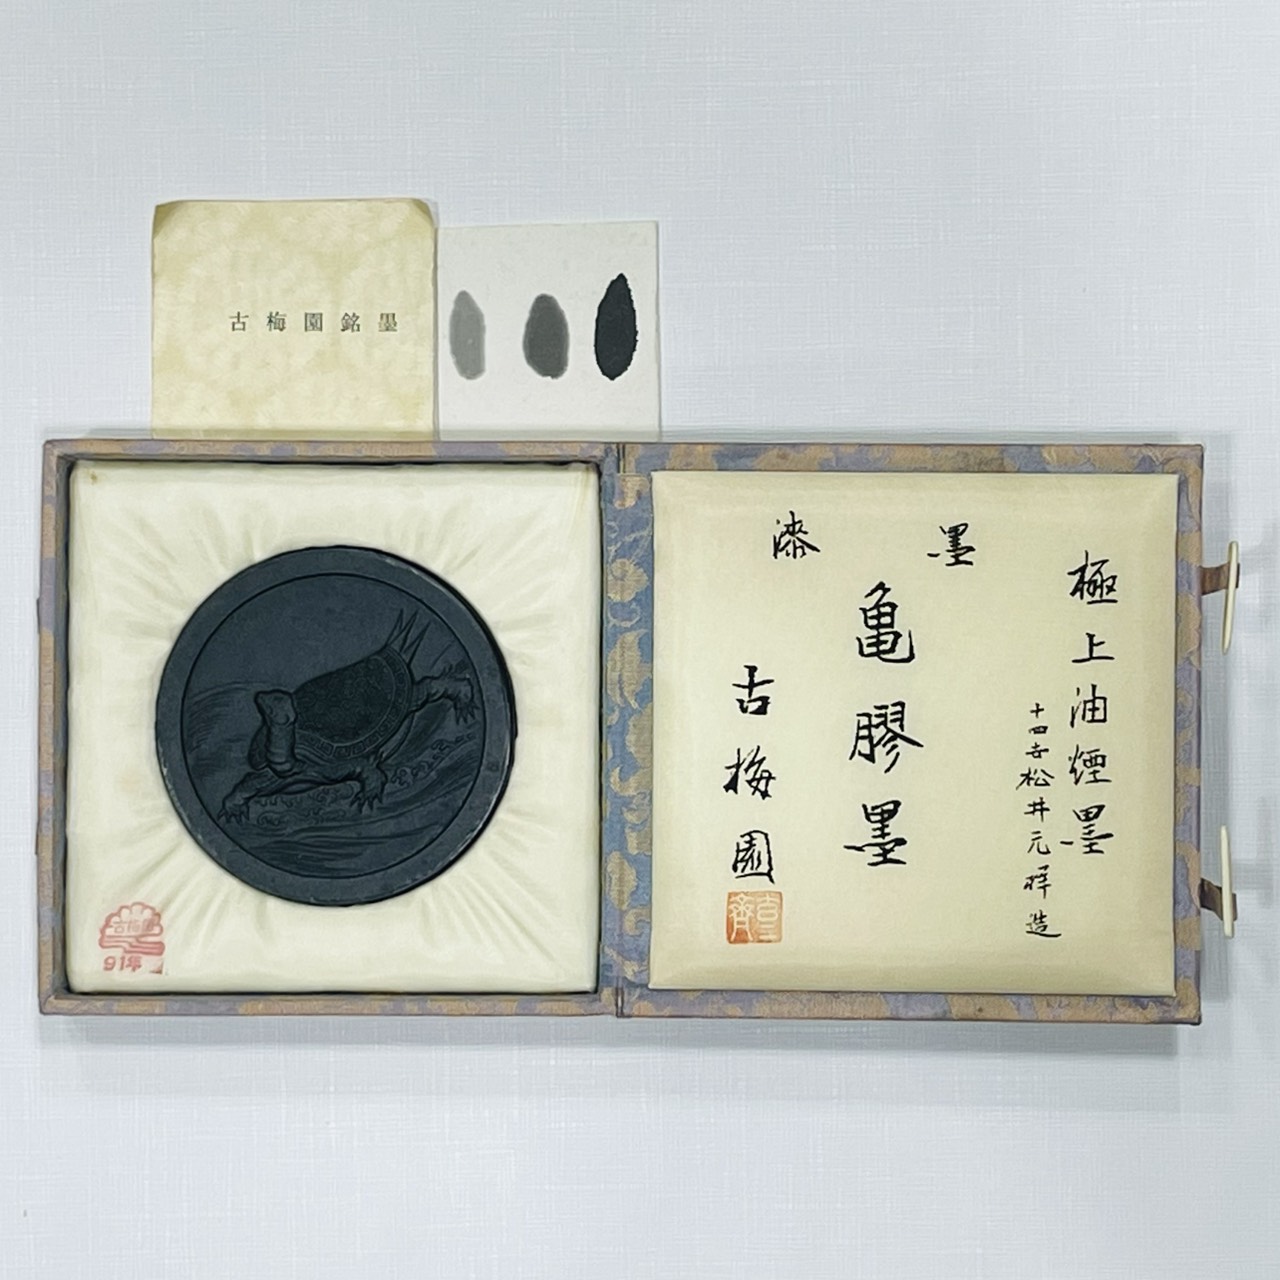 古梅園銘墨
極上油煙墨
十四世松井元祥造
漆墨
亀膠墨
古梅園
古梅園
91年